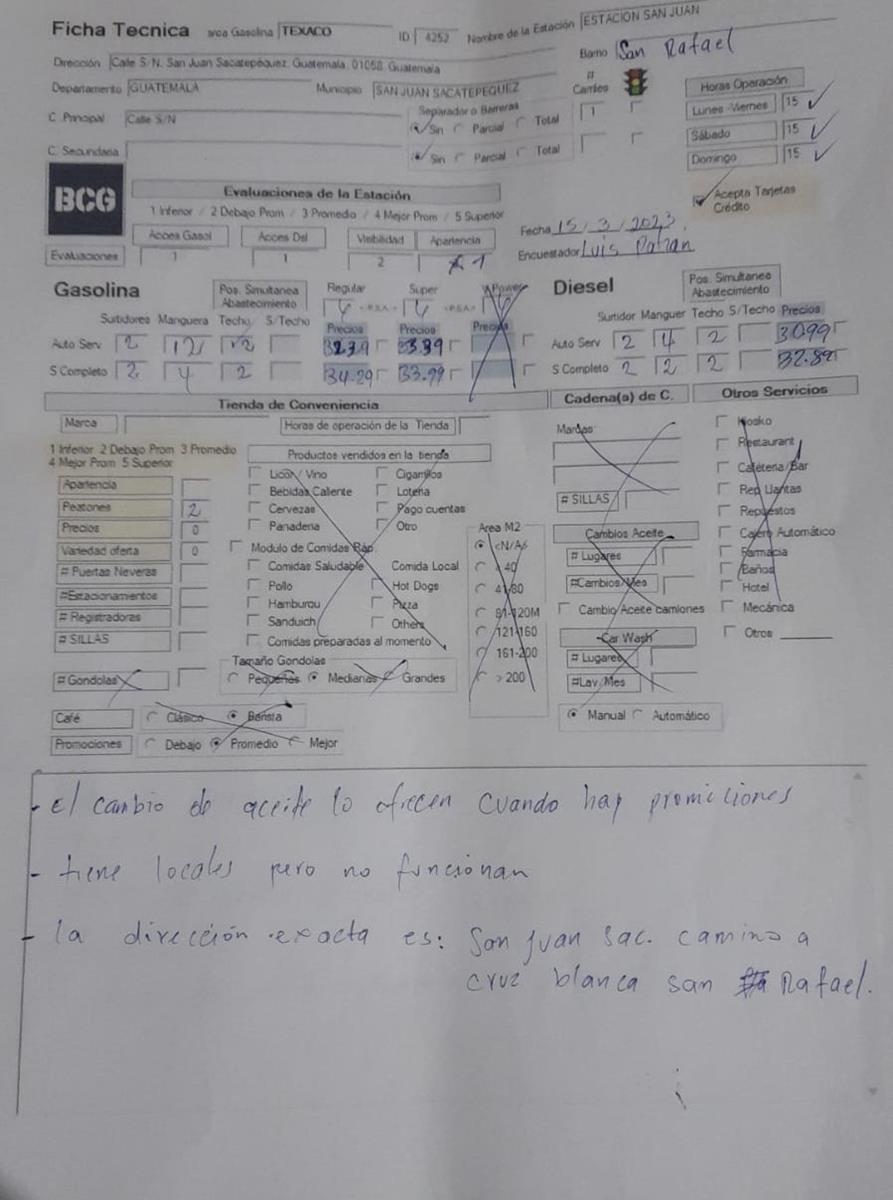 Ficha Tecnica arca Gasolina TEXACO ID 4252 Nombre de la Estación ESTACION SAN JUAN
Dirección Calle S/N, San Juan Sacatepéquez, Guatemala, 01058, Guatemala Barrio San Rafael
Departamento GUATEMALA Municipio SAN JUAN SACATEPEQUEZ # Carriles Horas Operación
C. Principal Calle S/N Separador o Barreras Sin Parcial Total 1 Lunes -Viernes 15
C. Secundaria Sin Parcial Total Sábado 15
Domingo 15
BCG Evaluaciones de la Estación Acepta Tarjetas Crédito
1 Inferior / 2 Debajo Prom / 3 Promedio / 4 Mejor Prom / 5 Superior
Fecha 15/3/2023
Acces Gasol Acces Dsl Visibilidad Apariencia
Encuestador Luis Patzan
Evaluaciones 1 1 2 1
Gasolina Pos. Simultanea Abastecimiento Regular Super VPower Diesel Pos. Simultanea Abastecimiento
Surtidores Manguera Techo S/Techo Precios Precios Precios Surtidor Manguer Techo S/Techo Precios
Auto Serv 2 12 2 Auto Serv 2 4 2 30.99
S Completo 2 4 2 34.29 33.99 S Completo 2 2 2 32.89
Tienda de Conveniencia Cadena(s) de C. Otros Servicios
Marca Horas de operación de la Tienda Marcas Kiosko
1 Inferior 2 Debajo Prom 3 Promedio
4 Mejor Prom 5 Superior
Productos vendidos en la tienda Restaurant
Licor / Vino Cigarrillos Cafeteria/Bar
Apariencia Bebidas Caliente Loteria # SILLAS Rep Llantas
Peatones 2 Cervezas Pago cuentas Repuestos
Precios 0 Panaderia Otro Area M2 Cambios Aceite Cajero Automático
Variedad oferta 0 Modulo de Comidas Ráp. <N/A> # Lugares Farmacia
# Puertas Neveras Comidas Saludable Comida Local < 40 #Cambios/Mes Baños
#Estacionamientos Pollo Hot Dogs 41-80 Hotel
# Registradoras Hamburgu Pizza 81-120M Cambio Aceite camiones Mecánica
# SILLAS Sanduich Others 121-160 Car Wash Otros
Comidas preparadas al momento 161-200 # Lugares
# Gondolas Tamaño Gondolas > 200 #Lav/Mes
Pequeñas Medianas Grandes
Café Clásico Barista Manual Automático
Promociones Debajo Promedio Mejor
- El cambio de aceite lo ofrecen cuando hay promiciones
- tiene locales pero no funcionan
- la dirección exacta es: San Juan Sac. camino a
cruz blanca san Rafael.